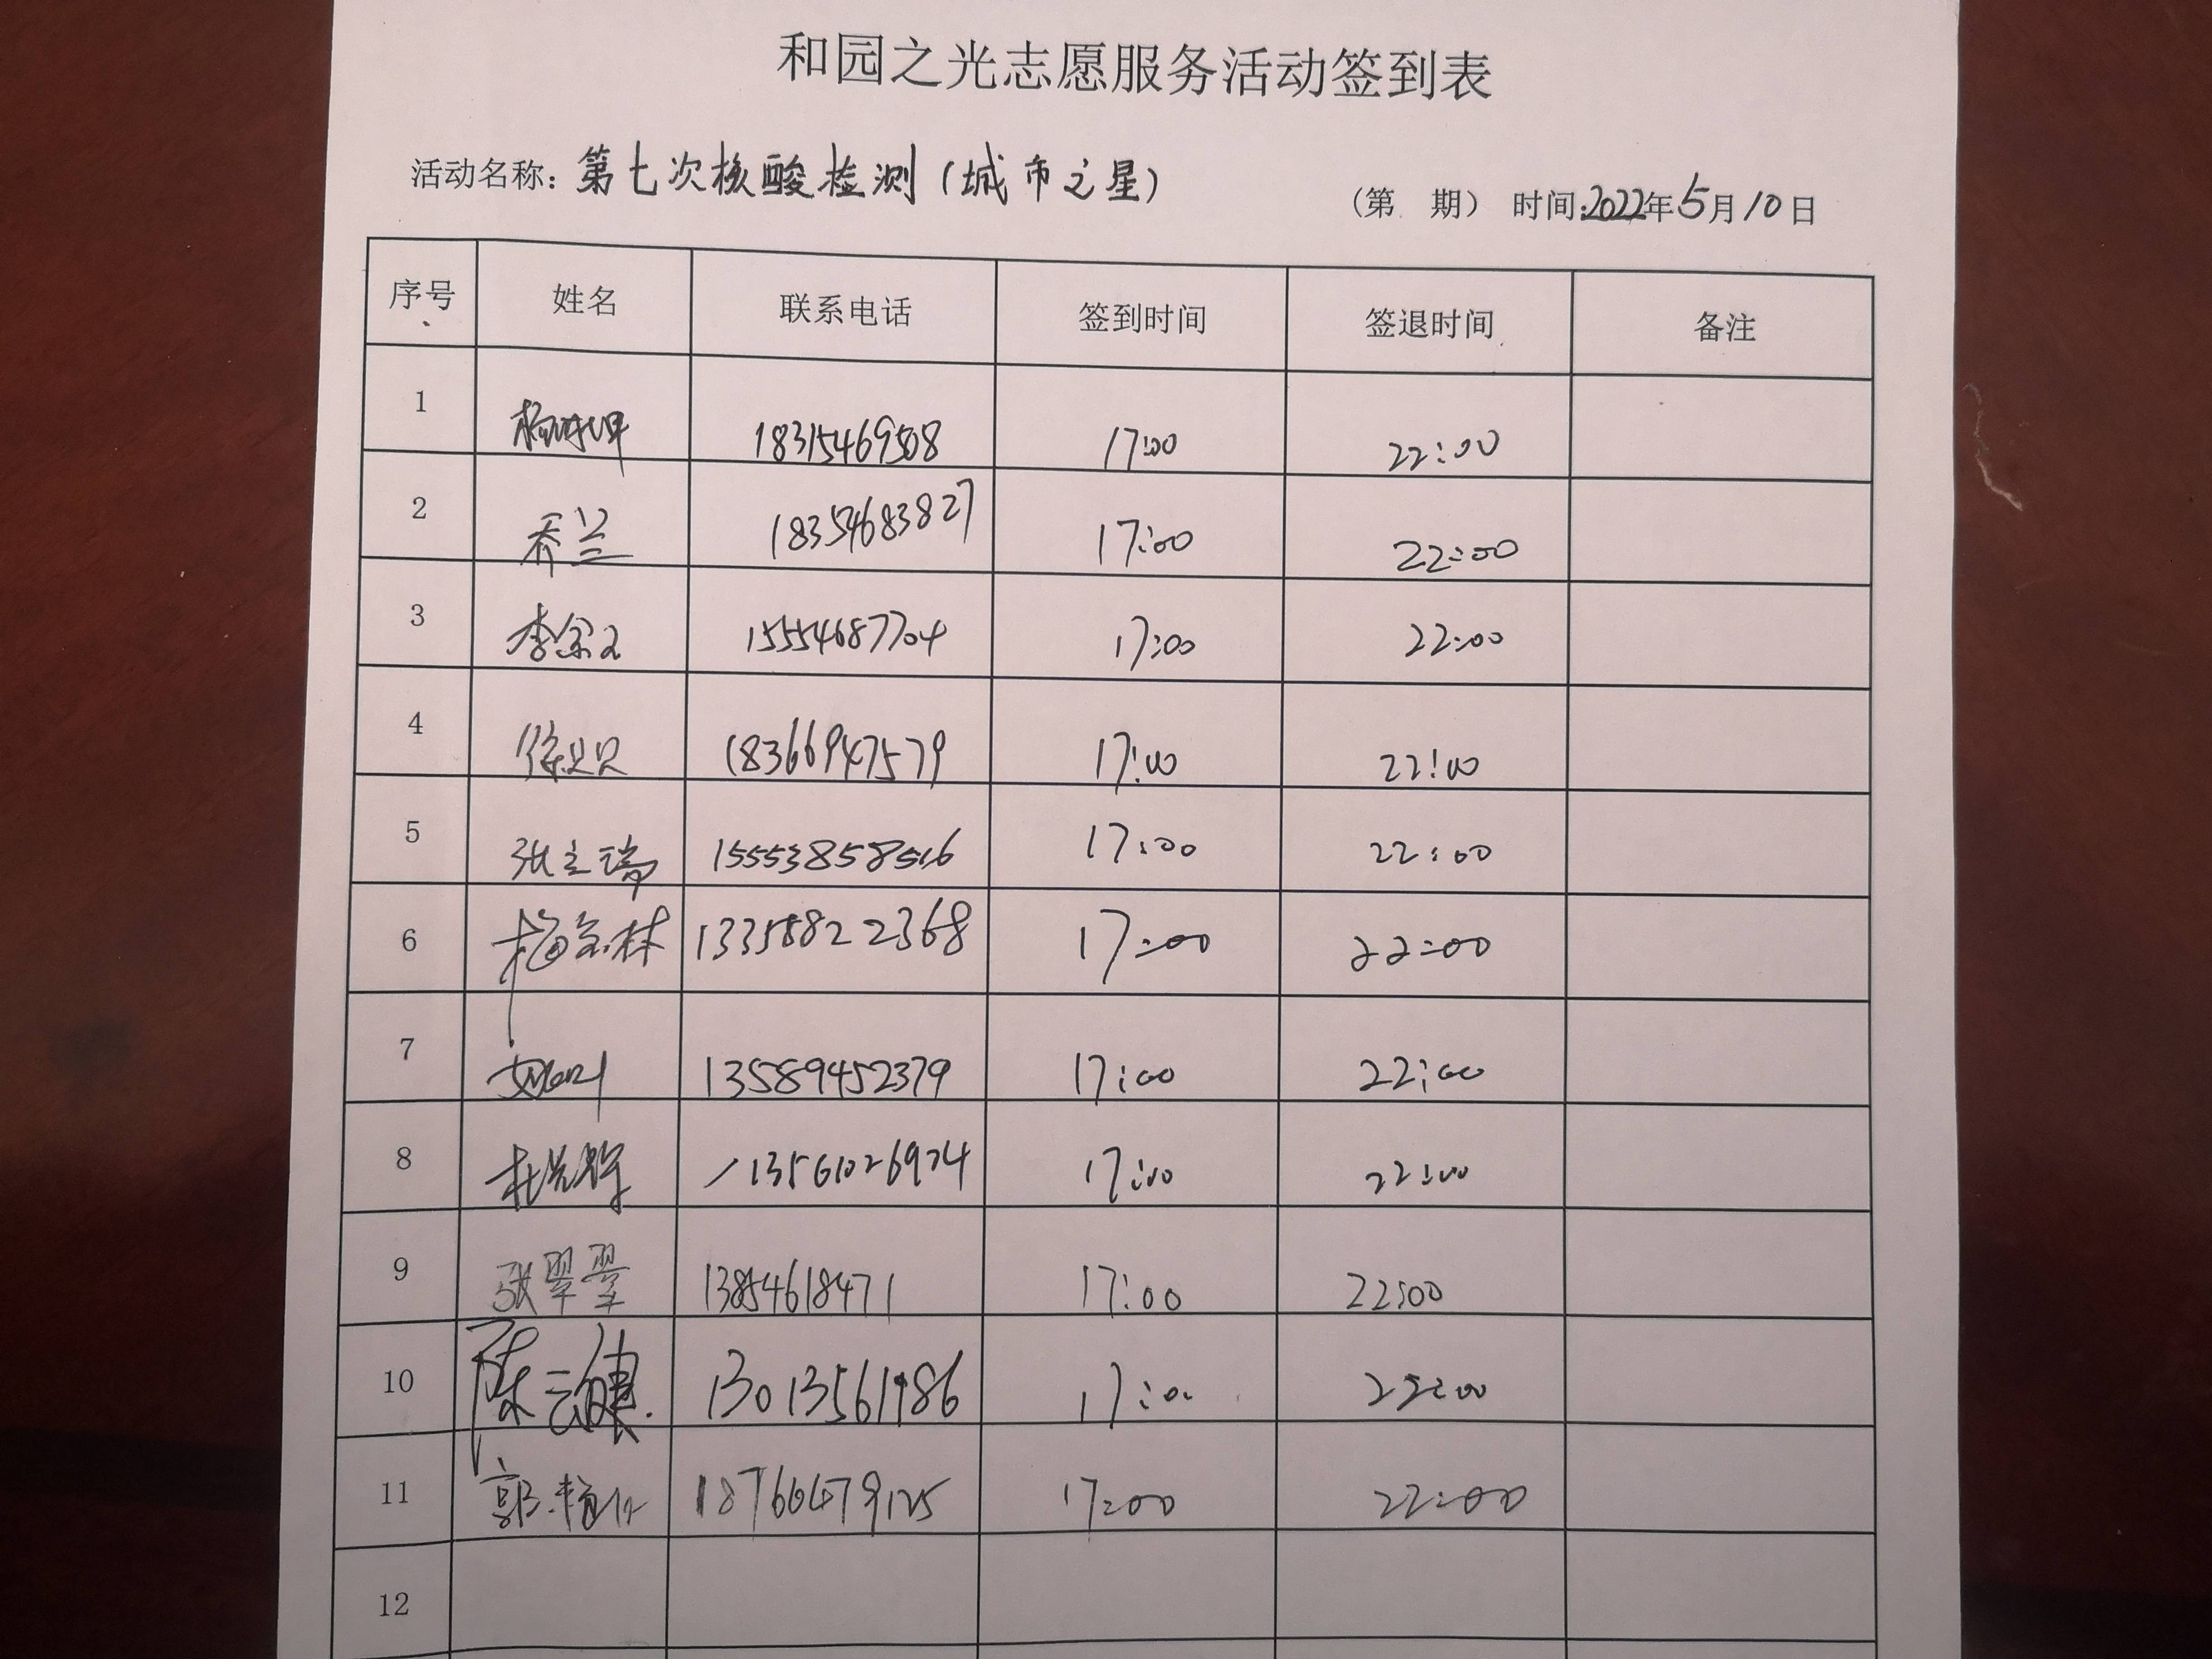 和园之光志愿服务活动签到表
活动名称：第七次核酸检测（城市之星）
（第 期） 时间：2022年5月10日
序号 姓名 联系电话 签到时间 签退时间 备注
1 18315469508 17:00 22:00
2 乔兰 18354683827 17:00 22:00
3 15554687704 17:00 22:00
4 徐贝贝 18366947579 17:00 22:00
5 张立瑞 15553858516 17:00 22:00
6 梅宝林 13358822368 17:00 22:00
7 13589452379 17:00 22:00
8 13561026974 17:00 22:00
9 张翠翠 13854618471 17:00 22:00
10 陈云健 13013561986 17:00 22:00
11 郭 18766679125 17:00 22:00
12